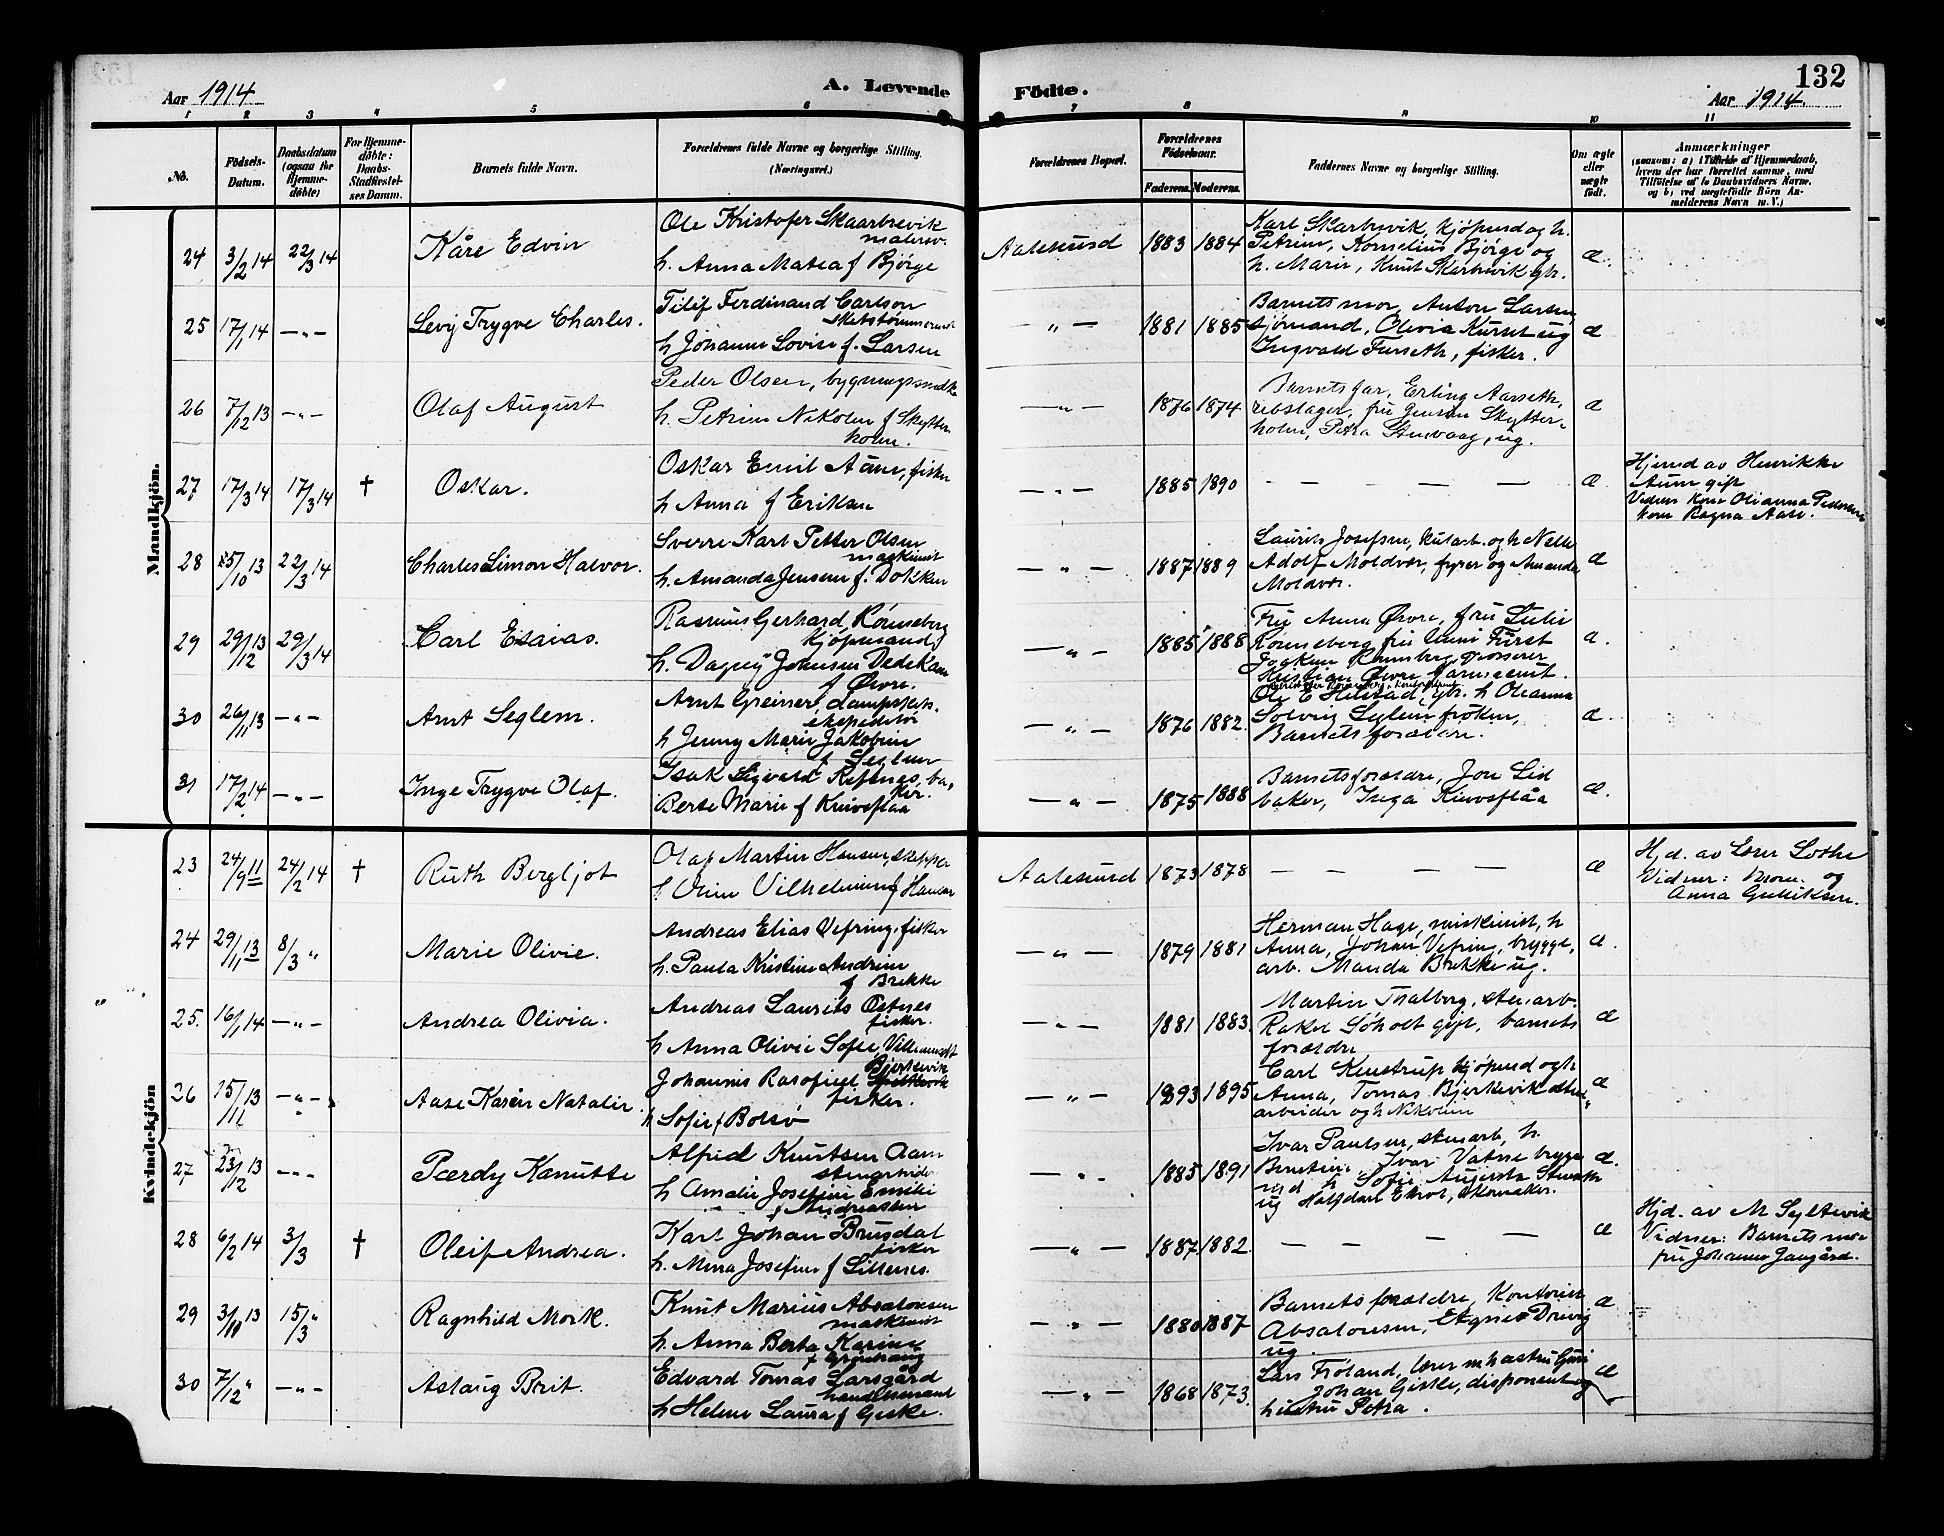 132
Aar 1914
A. Levende Födte.
Aar 1914.
1 2 3 4 5 6 7 8 9 10 11
No.
Födsels-
Datum.
Daabsdatum
(ogsaa for
Hjemme-
döbte)
For Hjemme-
döbte:
Daabs-
Stadfæstel-
ses Datum.
Barnets fulde Navn.
Forældrenes fulde Navne og borgerlige Stilling.
(Næringsvei.)
Forældrenes Bopæl.
Forældrenes
Födselsaar.
Faderens. Moderens.
Faddernes Navne og borgerlige Stilling.
Om ægte
eller
uægte
födt.
Anmærkninger
(saasom: a) i Tilfælde af Hjemmedaab,
hvem der har forrettet samme, med
Tilföielse af to Daabsvidners Navne,
og b) ved uægtefödte Börn An-
melderens Navn m. V.)
Mandkjön.
24 3/2 14 22/3 14 Kåre Edvin
Ole Kristofer Skaarbrevik
h. Anna Matea f Bjørge
Aalesund 1883 1884
Karl Skarbrevik, kjøpmd og h.
Petrine, Kornelius Bjørge og
h. Marie, Knut Skarbrevik gbr.
æ.
25 17/1 14 —"— Levy Trygve Charles.
Ferdinand Carlson
h Johanne Lovise f. Larsen
—"— 1881 1885
Barnets mor, Anton Larsen
sjømand, Olivia ug
Ingvald Furseth, fisker.
æ
26 7/12 13 —"— Olaf August
Peder Olsen,
h. Petrine Nikolin f Skytter
holm.
—"— 1876 1874
Barnets far, Erling Aarseth,
rebslager, fru Jensen Skytter-
holm, Petra Stenvaag, ug.
æ
27 17/3 14 17/3 14 † Oskar.
Oskar Emil Aune, fisker
h Anna f Eriksen
—"— 1885 1890 — — — — —
æ
Hjemd av Henrikke
Aune gift
Vidner kone Olianna Pedersen
kone Ragna Aase.
28 25/10 13 22/3 14 Charles Simon Halvor.
Sverre Karl Petter Olsen
maskinist
h. Amanda Jensen f. Dokken
—"— 1887 1889
Laurits Josefsen, kularb. og h Nelle
Adolf Moldvær, fyrer og Amanda
Moldvær.
æ
29 29/12 13 29/3 14 Carl Esaias.
Rasmus Gerhard Rønneberg
kjøpmand
h. Dagny Johnsen Dedekam
f Øvre.
—"— 1885 1888
Fru Anna Øvre, fru Julie
Rønneberg fru Fürst
Joakim Rønneberg, grosserer
Kristian Øvre
æ.
30 26/11 13 —"— Arnt Seglem.
Arnt Greiner, dampskibs.
ekspeditør
h Jenny Marie Jakobine
f Seglem
—"— 1876 1882.
Ole E Hilstad gbr. h Oleanna
Solveig Seglem frøken,
Barnets forældre.
æ.
31 17/2 14 —"— Inge Trygve Olaf.
Isak Sigvald Refsnes, ba,
ker.
Berte Marie f Knivsflaa
—"— 1875 1888
Barnets forældre, Jon Lid
baker, Inga Knivsflåa
æ.
Kvindekjön
23 24/9 11 24/2 14 † Ruth Bergljot
Olaf Martin Hansen, skipper
h Vilhelmine f Hansen
Aalesund 1873 1878 — — — —
æ
Hjd. av Lærer Lothe
Vidner: Moren og
Anna Gulliksen.
24 29/11 13 8/3 " Marie Olivie.
Andreas Elias Vefring, fisker
h. Paula Kristine Andrine
f Brekke
—"— 1879 1881
Herman Hage, maskinist, h
Anna, Johan Vefrin, brygge,
arb. Manda Brekke ug.
æ.
25. 16/1 14 —"— Andrea Olivia.
Andreas Laurits Østnes
fisker.
h Anna Olivie Sofie
—"— 1881 1883.
Martin Thalberg, stenarb.
Rakel Søholt gift, barnets
forældre
æ
26 15/11 13 —"— Aase Karen Natalie.
Johannes Rasofiel Bjerkevik
fisker.
h Sofie f Bolsø
—"— 1893 1895
Carl kjøpmd og h
Anna, Tomas Bjerkevik
arbeider og h Nikoline
æ
27 23/12 13 —"— Pærdy Kanutte
Alfred Knutsen Aam
stenarbeider
h Amalie Josefine Emilie
f Andreassen
—"— 1885 1891
Ivar Paulsen, stenarb, h.
Ivar Vatne brygge
h Sofie,
ug Halfdan skomaker.
æ.
28 6/2 14 3/3 † Oleif Andrea.
Karl Johan Brusdal
fisker
h. Mina Josefine f
—"— 1887 1882. — — — —
æ
Hjd. av M Syltevik
Vidner: Barnets mor
fru Johanne
29 3/10 13 15/3 " Ragnhild Mork.
Knut Marius Absalonsen
maskinist
h. Anna Berta Karine
—"— 1880 1887
Barnets forældre, Kontorist
Absalonsen, Drevig
ug.
æ
30 7/12 " —"— Aslaug Brit.
Edvard Tomas Larsgård
handelsmand
h Helene Laura f Giske.
—"— 1868 1873.
Lars Frøland, lærer m hustru Guri
Johan Giske, disponent og
hustru Petra.
æ